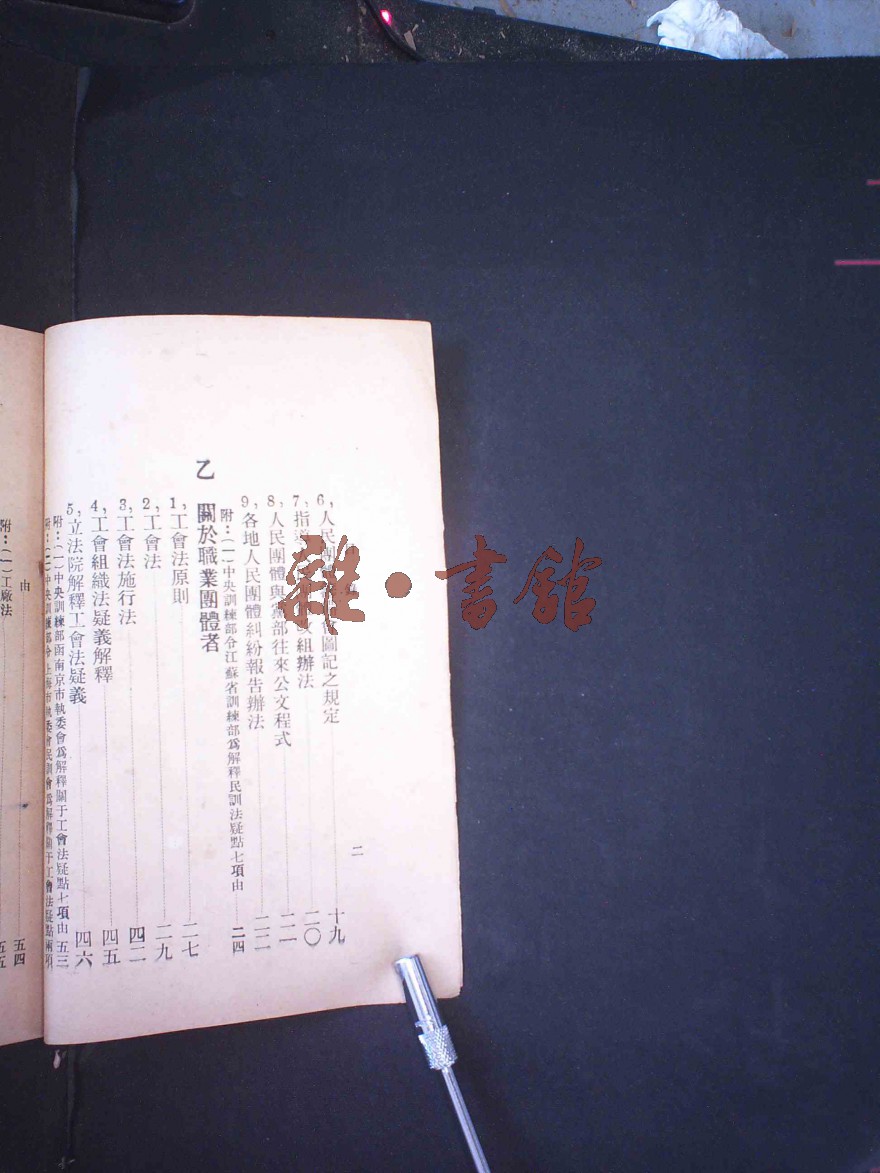 6,人民團圖記之規定……十九
7,指組辦法……二〇
8,人民團體與黨部往來公文程式……二一
9,各地人民團體糾紛報告辦法……二二
附:(一)中央訓練部令江蘇省訓練部爲解釋民訓法疑點七項由……二四
乙 關於職業團體者
1,工會法原則……二七
2,工會法……二九
3,工會法施行法……四二
4,工會組織法疑義解釋……四五
5,立法院解釋工會法疑義……四六
附:(一)中央訓練部函南京市執委會爲解釋關于工會法疑點十項由五三
附:(二)中央訓練部令上海市執委會民訓會爲解釋關于工會法疑點兩項
由……五四
附:(一)工廠法……五五
二
雜·書館